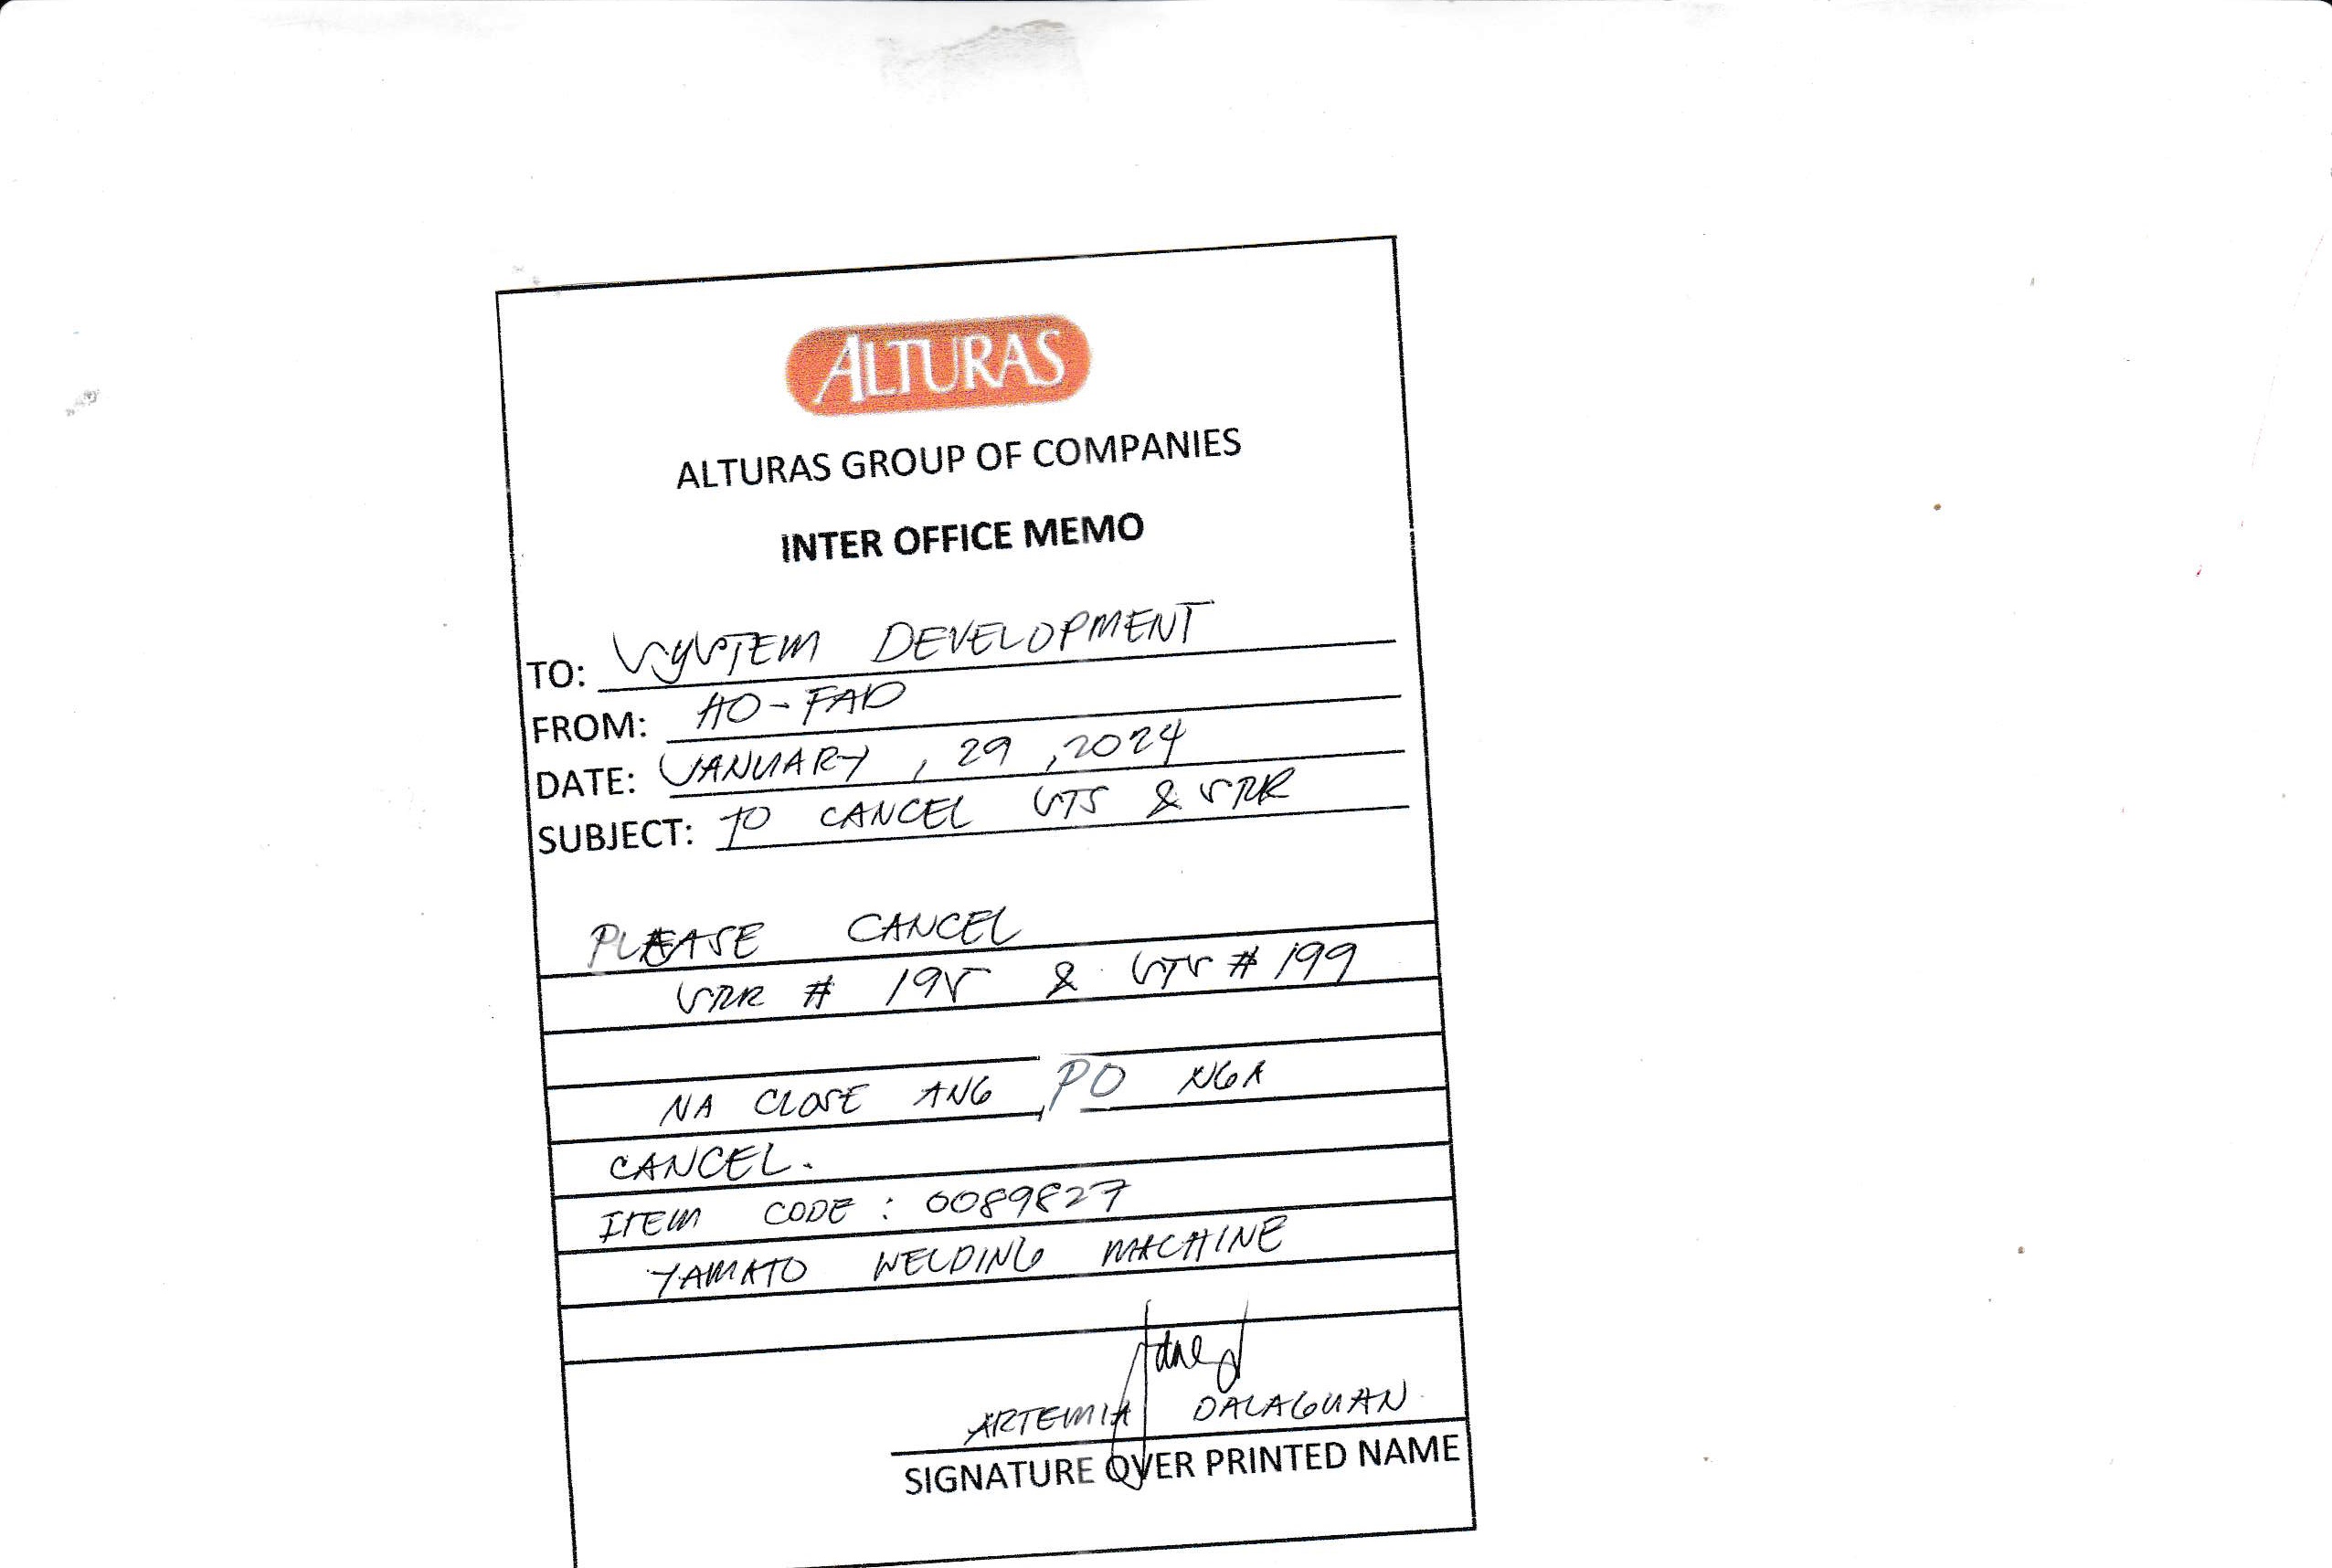 ALTURAS
ALTURAS GROUP OF COMPANIES
INTER OFFICE MEMO
TO: SYSTEM DEVELOPMENT
FROM: HO-FAD
DATE: JANUARY, 29, 2024
SUBJECT: TO CANCEL STS & SRR
PLEASE CANCEL
SRR # 195 & STS # 199
NA CLOSE ANG PO NGA
CANCEL.
ITEM CODE: 0089827
YAMATO WELDING MACHINE
ARTEMIA DALAGUAN
SIGNATURE OVER PRINTED NAME